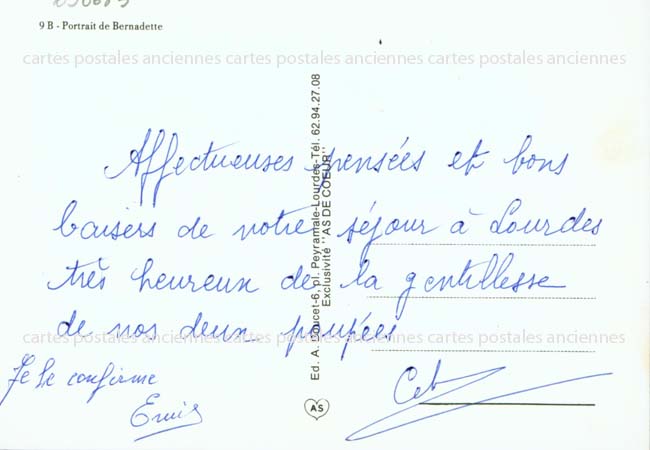 9 B - Portrait de Bernadette
cartes postales anciennes cartes postales anciennes cartes postales anciennes
Affectueuses pensées et bons
baisers de notre séjour à Lourdes
très heureux de la gentillesse
de nos deux poupées
cartes postales anciennes cartes postales anciennes cartes postales anciennes
Je le confirme
Ed. A. Doucet-6, pl. Peyramale-Lourdes-Tél. 62.94.27.08
Exclusivité "AS DE COEUR"
AS